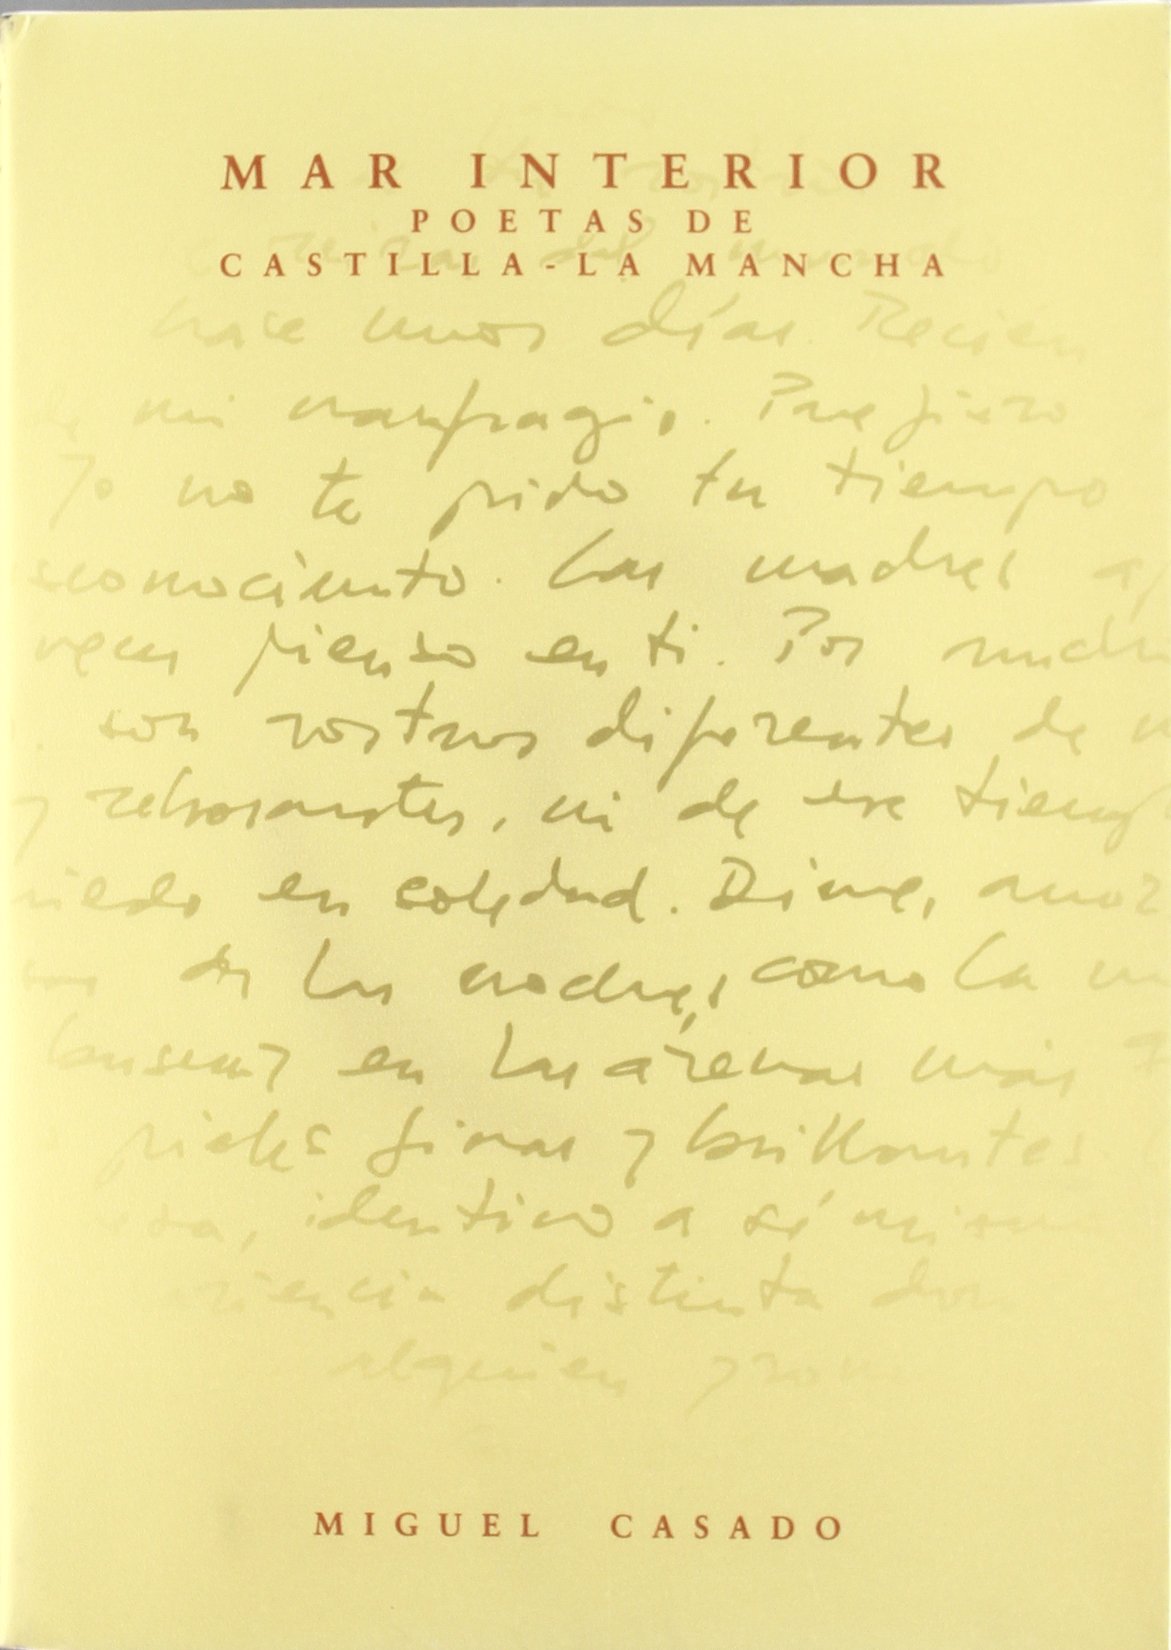 MAR INTERIOR
POETAS DE
CASTILLA-LA MANCHA
hace unos días. Recien
mi naufragio. Prefiero
Yo no te pido tu tiempo
sconocimiento. Las madres
veces pienso en ti. Por
son rostros diferentes de
y rebosantes, ni de ese tiemp
miedo en soledad. Dime, amor
de las madres, como la
en las arenas más
pieles finas y brillantes.
idéntico a sí mismo
riencia distinta
alguien
MIGUEL CASADO